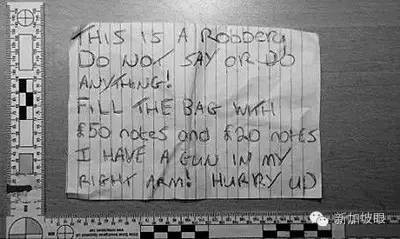 THIS IS A ROBBERY
DO NOT SAY OR DO
ANYTHING!
FILL THE BAG WITH
£50 notes and £20 notes
I HAVE A GUN IN MY
RIGHT ARM! HURRY UP
新加坡眼